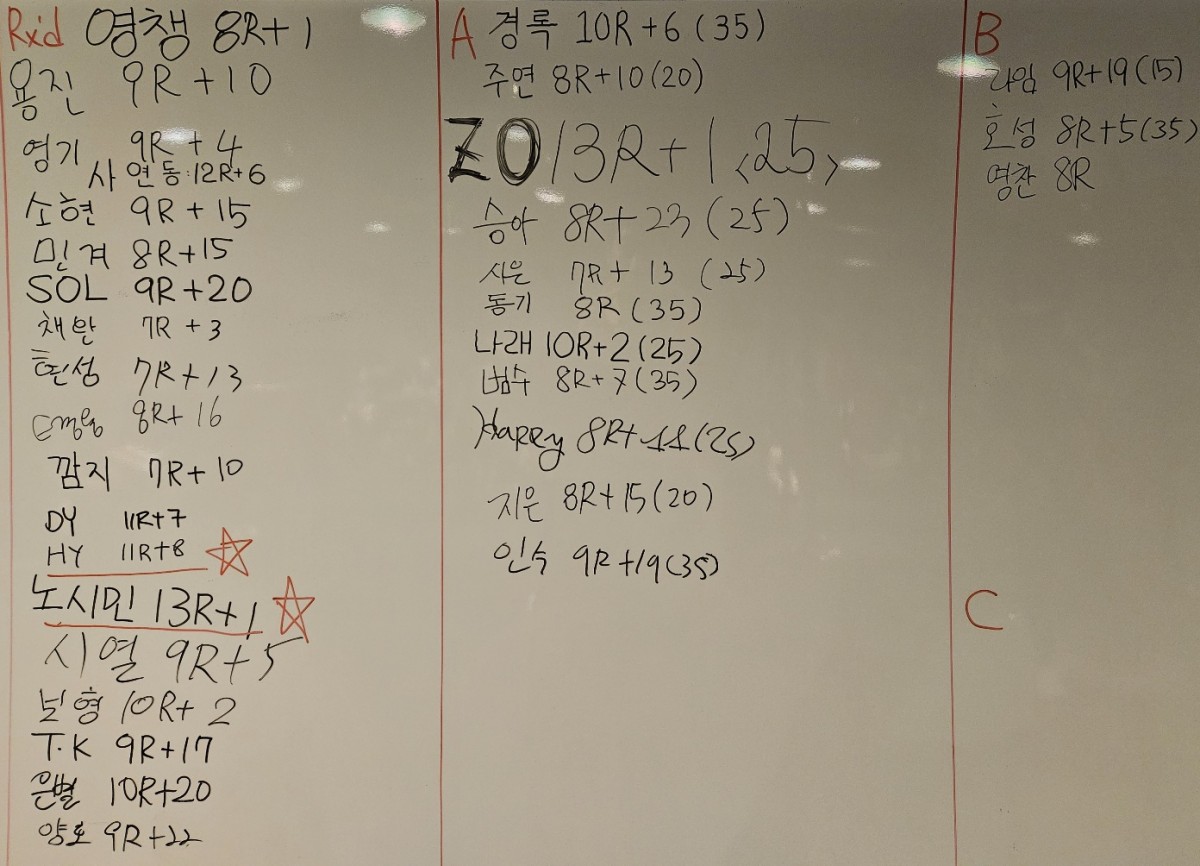 Rxd 영챙 8R+1
용진 9R+10
영기 9R+4
사연동:12R+6
소현 9R+15
민겨 8R+15
SOL 9R+20
채완 7R+3
현성 7R+13
8R+16
깜지 7R+10
DY 11R+7
HY 11R+8
노시민 13R+1
시열 9R+5
보형 10R+2
T.K 9R+17
은별 10R+20
양호 9R+22
A 경록 10R+6(35)
주연 8R+10(20)
ZO 13R+1<25>
승아 8R+23(25)
사은 7R+13(25)
동기 8R(35)
나래 10R+2(25)
범수 8R+7(35)
Happy 8R+11(25)
지은 8R+15(20)
인수 9R+19(35)
B
라임 9R+19(15)
호성 8R+5(35)
영찬 8R
C